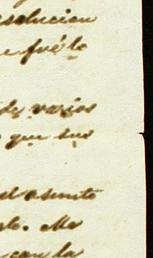 esolucion
e fué lo
de varios
que sus
el asunto
sto. Me
con la